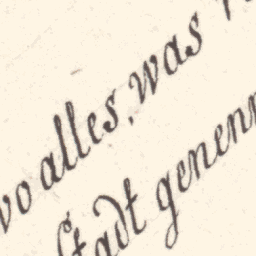 wo alles, was
Stadt genenn